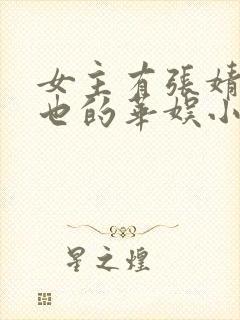 女主有張婧
也的華娱小
星之煌